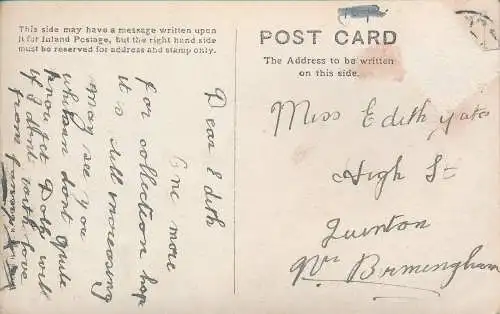 This side may have a message written upon
it for Inland Postage, but the right hand side
must be reserved for address and stamp only.
POST CARD
The Address to be written
on this side.
Dear Edith
One more
for collection hope
it is still increasing
may see you
whitsun dont quite
know yet Doll will
if I dont with love
from
Miss Edith Yates
High St
Quinton
Nr Birmingham